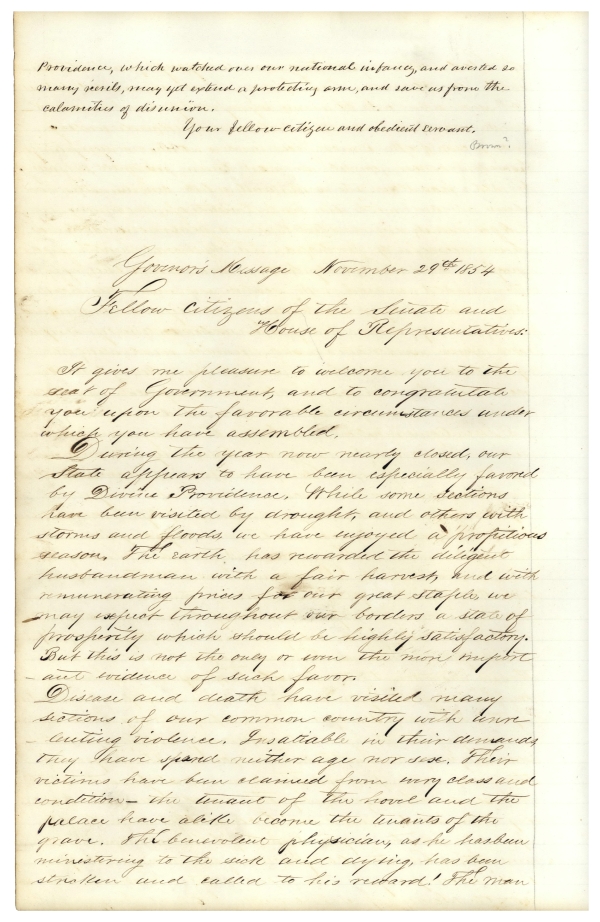 Providence, which watched over our national infancy, and averted so
many perils, may yet extend a protecting arm, and save us from the
calamities of disunion.
Your fellow citizen and obedient servant.
Govenor's Message November 29th 1854
Fellow Citizens of the Senate and
House of Representatives:
It gives me pleasure to welcome you to the
seat of Government, and to congratulate
you upon the favorable circumstances under
which you have assembled.
During the year now nearly closed, our
State appears to have been especially favored
by Divine Providence. While some sections
have been visited by drought, and others with
storms and floods, we have enjoyed a propitious
season. The earth has rewarded the diligent
husbandman with a fair harvest, and with
remunerating prices for our great staple, we
may expect throughout our borders a state of
prosperity which should be highly satisfactory.
But this is not the only or even the more import
-ant evidence of such favor.
Disease and death have visited many
sections of our common country with unre
-lenting violence. Insatiable in their demands
they have spared neither age nor sex. Their
victims have been claimed from every class and
condition - the tenant of the hovel and the
palace have alike become the tenants of the
grave. The benevolent physician, as he has been
ministering to the sick and dying, has been
stricken and called to his reward! The man